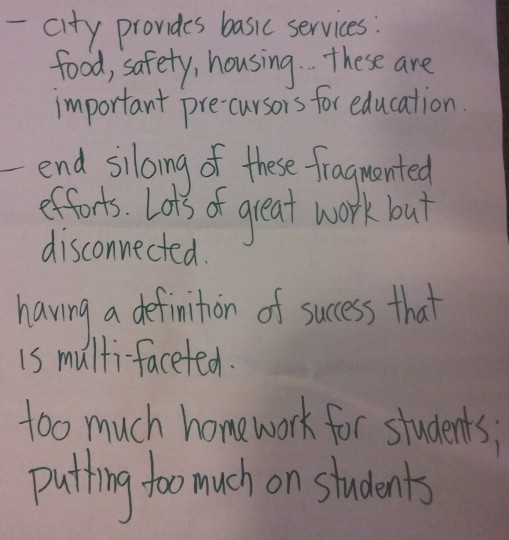 - city provides basic services:
food, safety, housing... these are
important pre-cursors for education.
- end siloing of these fragmented
efforts. Lots of great work but
disconnected.
having a definition of success that
is multi-faceted.
too much homework for students;
putting too much on students